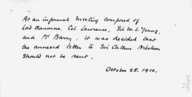 At an informal meeting composed of
Lord Desmore, Col. Lawrence, Sir W. L. Young,
and Mr Barry. it was decided that
the annexed letter to Sir Arthur Nicholson
should not be sent.
October 28. 1910.